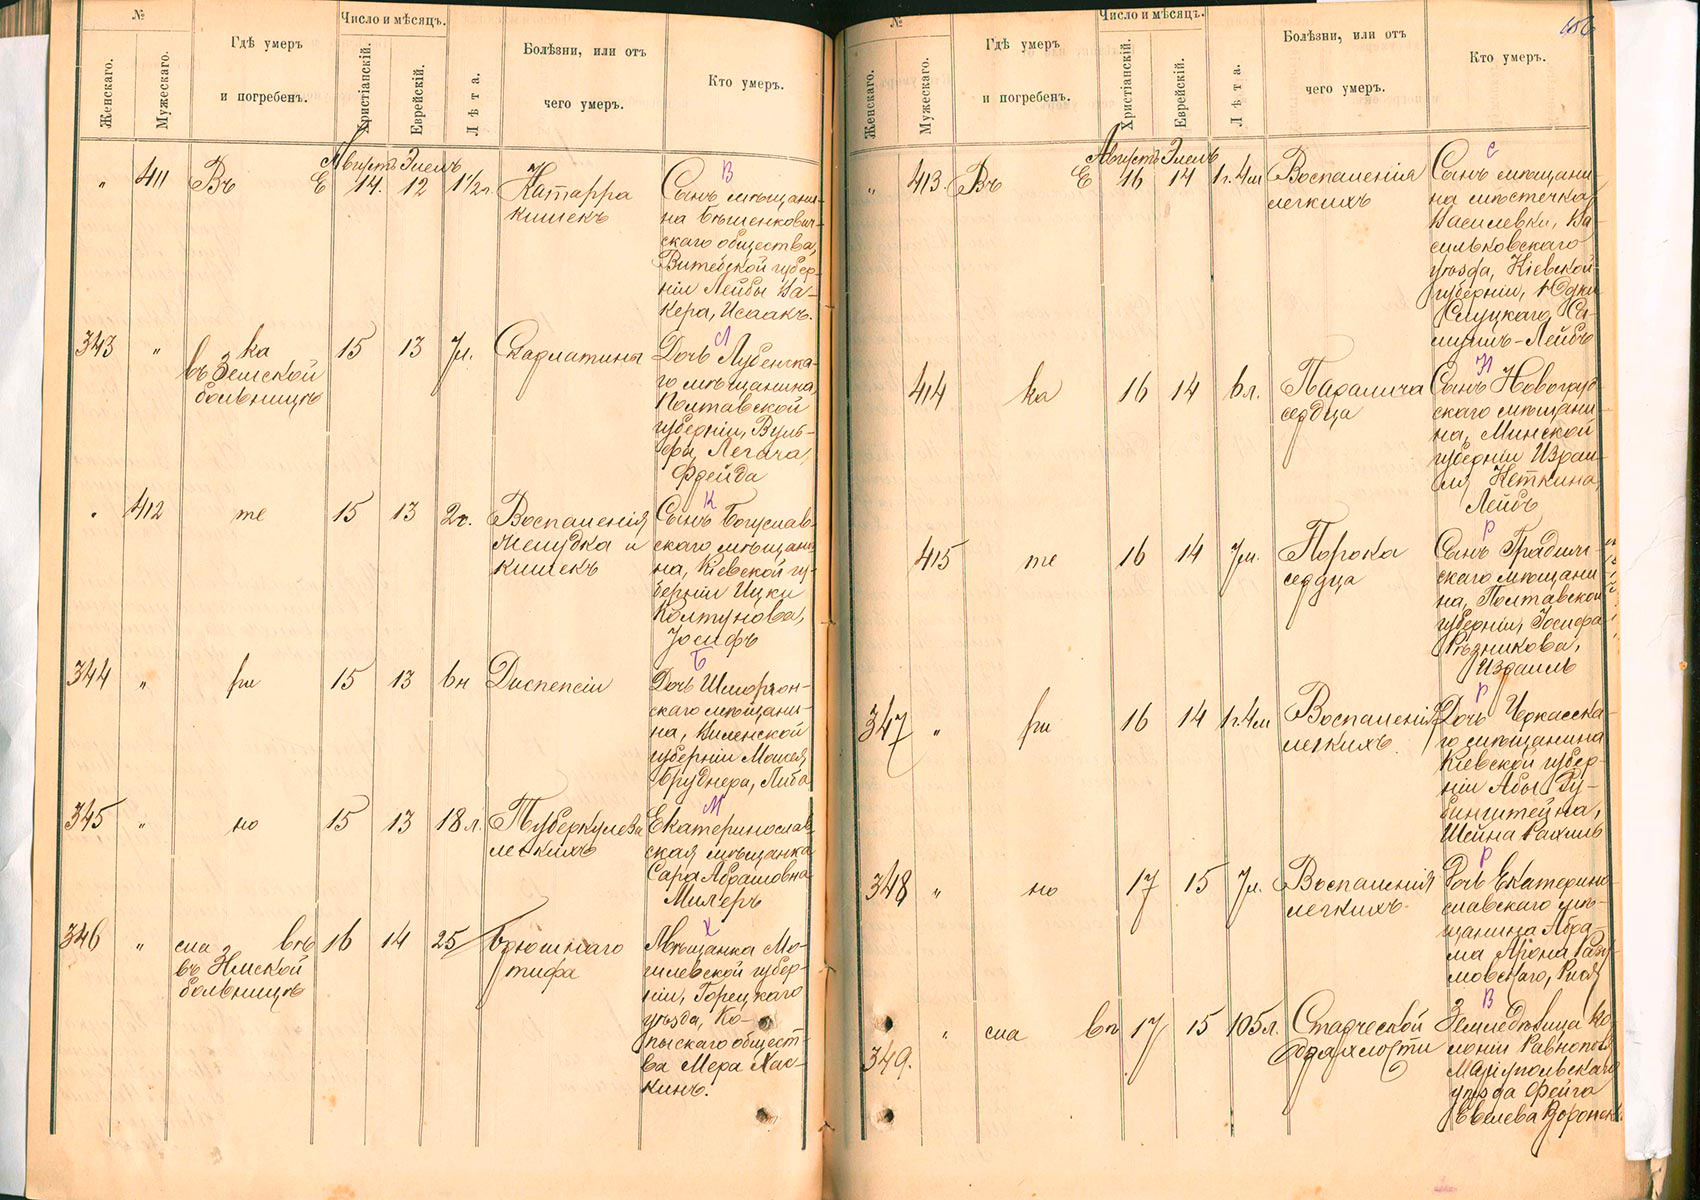 №
Женскаго.
Мужескаго.
Гдѣ умеръ
и погребенъ.
Число и мѣсяцъ.
Христіанскій.
Еврейскій.
Лѣта.
Болѣзни, или отъ
чего умеръ.
Кто умеръ.
Августъ Элелъ
" 411 Въ Е 14. 12 1 1/2 г.
Катарра
кишекъ
В
Сынъ мѣщани-
на Бѣшенкович-
скаго общества,
Витебской губер-
ніи Лейбы Ва-
кера, Исаакъ.
343 " ка 15 13 7м. Скарлатины
въ Земской
больницѣ
Л
Дочь Лубенска-
го мѣщанина,
Полтавской
губерніи, Вуль-
фа Легача,
Фрейда
" 412 те 15 13 2г.
Воспаленія
желудка и
кишекъ
К
Сынъ Богуслав-
скаго мѣщани-
на, Кіевской гу-
берніи Ицки
Колтунова,
Іосифъ
344 " ри 15 13 6н Диспепсіи
Б
Дочь Шморгон-
скаго мѣщани-
на, Виленской
губерніи Мошея
Бруднера, Либа
345 " но 15 13 18 л.
Туберкулеза
легкихъ
М
Екатеринослав-
ская мѣщанка
Сара Абрамовна
Милеръ
346 " сла въ 16 14 25
въ Земской
больницѣ
Брюшнаго
тифа
Х
Мѣщанка Мо-
гилевской губер-
ніи, Горецкаго
уѣзда, Ко-
пыскаго общест-
ва Мера Хас-
кинъ.
№
Женскаго.
Мужескаго.
Гдѣ умеръ
и погребенъ.
Число и мѣсяцъ.
Христіанскій.
Еврейскій.
Лѣта.
Болѣзни, или отъ
чего умеръ.
Кто умеръ.
Августъ Элелъ
" 413. Въ Е 16 14 1г.4м
Воспаленія
легкихъ
С
Сынъ мѣщани-
на мѣстечка
Василевки, Ва-
сильковскаго
уѣзда, Кіевской
губерніи, Юдки
Слуцкаго,
414 ка 16 14 6л.
Паралича
сердца
Н
Сынъ Новогруд-
скаго мѣщани-
на, Минской
губерніи Израи-
ля Неткина,
Лейбъ
415 те 16 14 7м.
Порока
сердца
Р
Сынъ Градиж-
скаго мѣщани-
на, Полтавской
губерніи, Іосифа
Рѣзникова,
Израиль
347 " ри 16 14 1г.4м
Воспаленія
легкихъ.
Р
Дочь Черкасска-
го мѣщанина
Кіевской губер-
ніи Абы Ру-
бинштейна,
Шейна Рахиль
348 " но 17 15 7м.
Воспаленія
легкихъ.
Р
Дочь Екатерино-
славскаго мѣ-
щанина Абра-
ма Арона Разу-
мовскаго,
349. " сла въ 17 15 105л.
Старческой
дряхлости
В
Земледѣлица ко-
лоніи Равнополь
Маріупольскаго
уѣзда Фейга